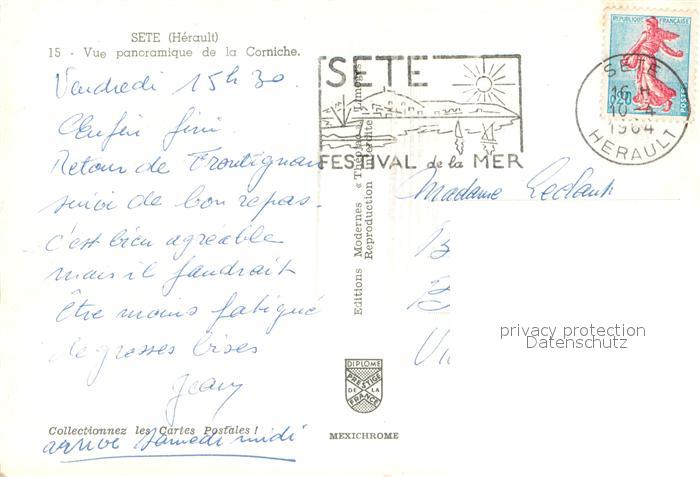 SETE (Hérault)
15 - Vue panoramique de la Corniche.
Vendredi 15h30.
Enfin fini.
Retour de Frontignan
suivi de bon repas.
c'est bien agréable
mais il faudrait
être moins fatigué
de grosses bises
Jeany
Collectionnez les Cartes Postales !
arrive samedi midi
Editions Modernes « Théojac » Limoges
Reproduction Interdite
DIPLOME
PRESTIGE
DE LA
FRANCE
MEXICHROME
SETE
FESTIVAL de la MER
REPUBLIQUE FRANÇAISE
0,20
POSTES
SETE
16 H
10 - 4
1964
HERAULT
Madame
B
B
Vi
privacy protection
Datenschutz